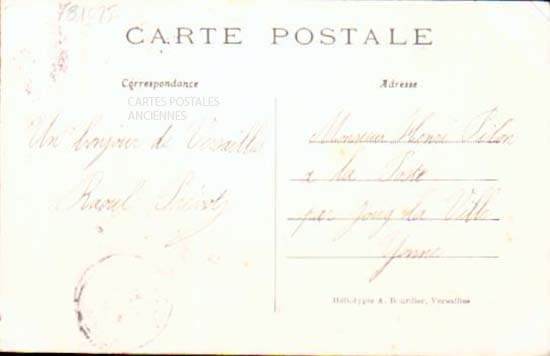 78.1075
CARTE POSTALE
Correspondance
Adresse
CARTES POSTALES
ANCIENNES
Un bonjour de Versailles
Raoul
Monsieur Henri
a la
par Joug la Ville
Yonne
Héliotypie A. Bourdier, Versailles